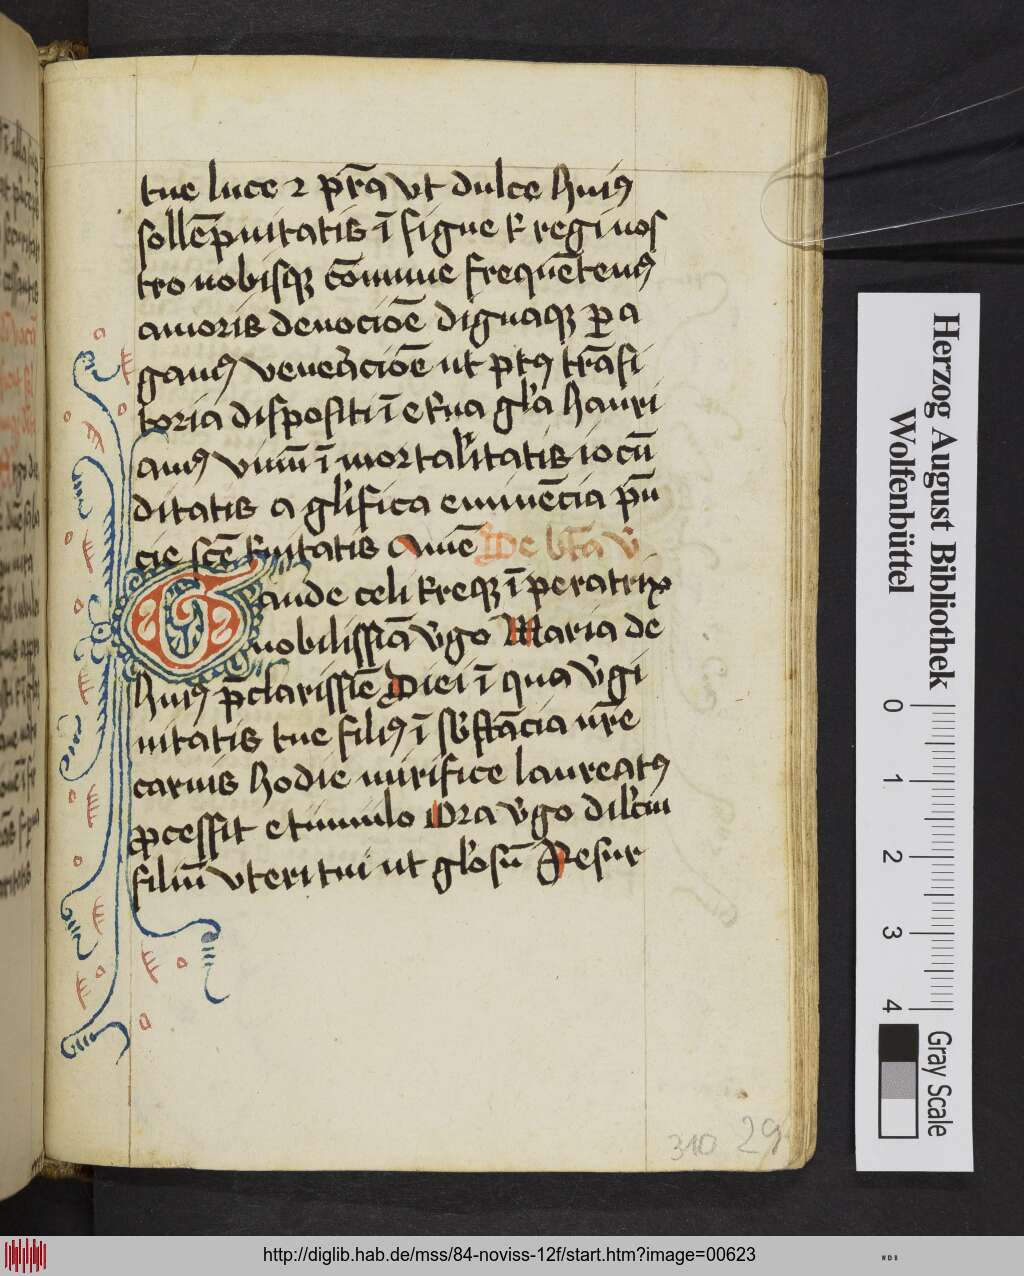 tue luce ⁊ pr̄a vt dulce huiꝰ
sollēpnitatis ī signe t̄regi nos
tro nobisqꝫ cōmune frequētenꝰ
amoris deuociōe dignaqꝫ ꝑa
ganꝰ veneraciōe ut ptꝰ trāsi
toria dispositi ī et̄na gl̄a hauri
anꝰ vinū ī mortalitatis iocū
ditatis a gl̄ifica eminēcia p̄ñ
cie scē t̄nitatis Amē De bt̄a v̄
Gaude celi t̄reqꝫ īperatrix
nobilissīa v̄go Maria de
huiꝰ p̄clarissīe Diei ī qua v̄gi
nitatis tue filiꝰ ī sb̄stācia nr̄e
carnis hodie mirifice laureatꝰ
ꝓcessit e tumulo Ora v̄go dil̄cm
filiū vteri tui ut gl̄osū Resur
310 29
Herzog August Bibliothek
Wolfenbüttel
0 1 2 3 4
Gray Scale
http://diglib.hab.de/mss/84-noviss-12f/start.htm?image=00623